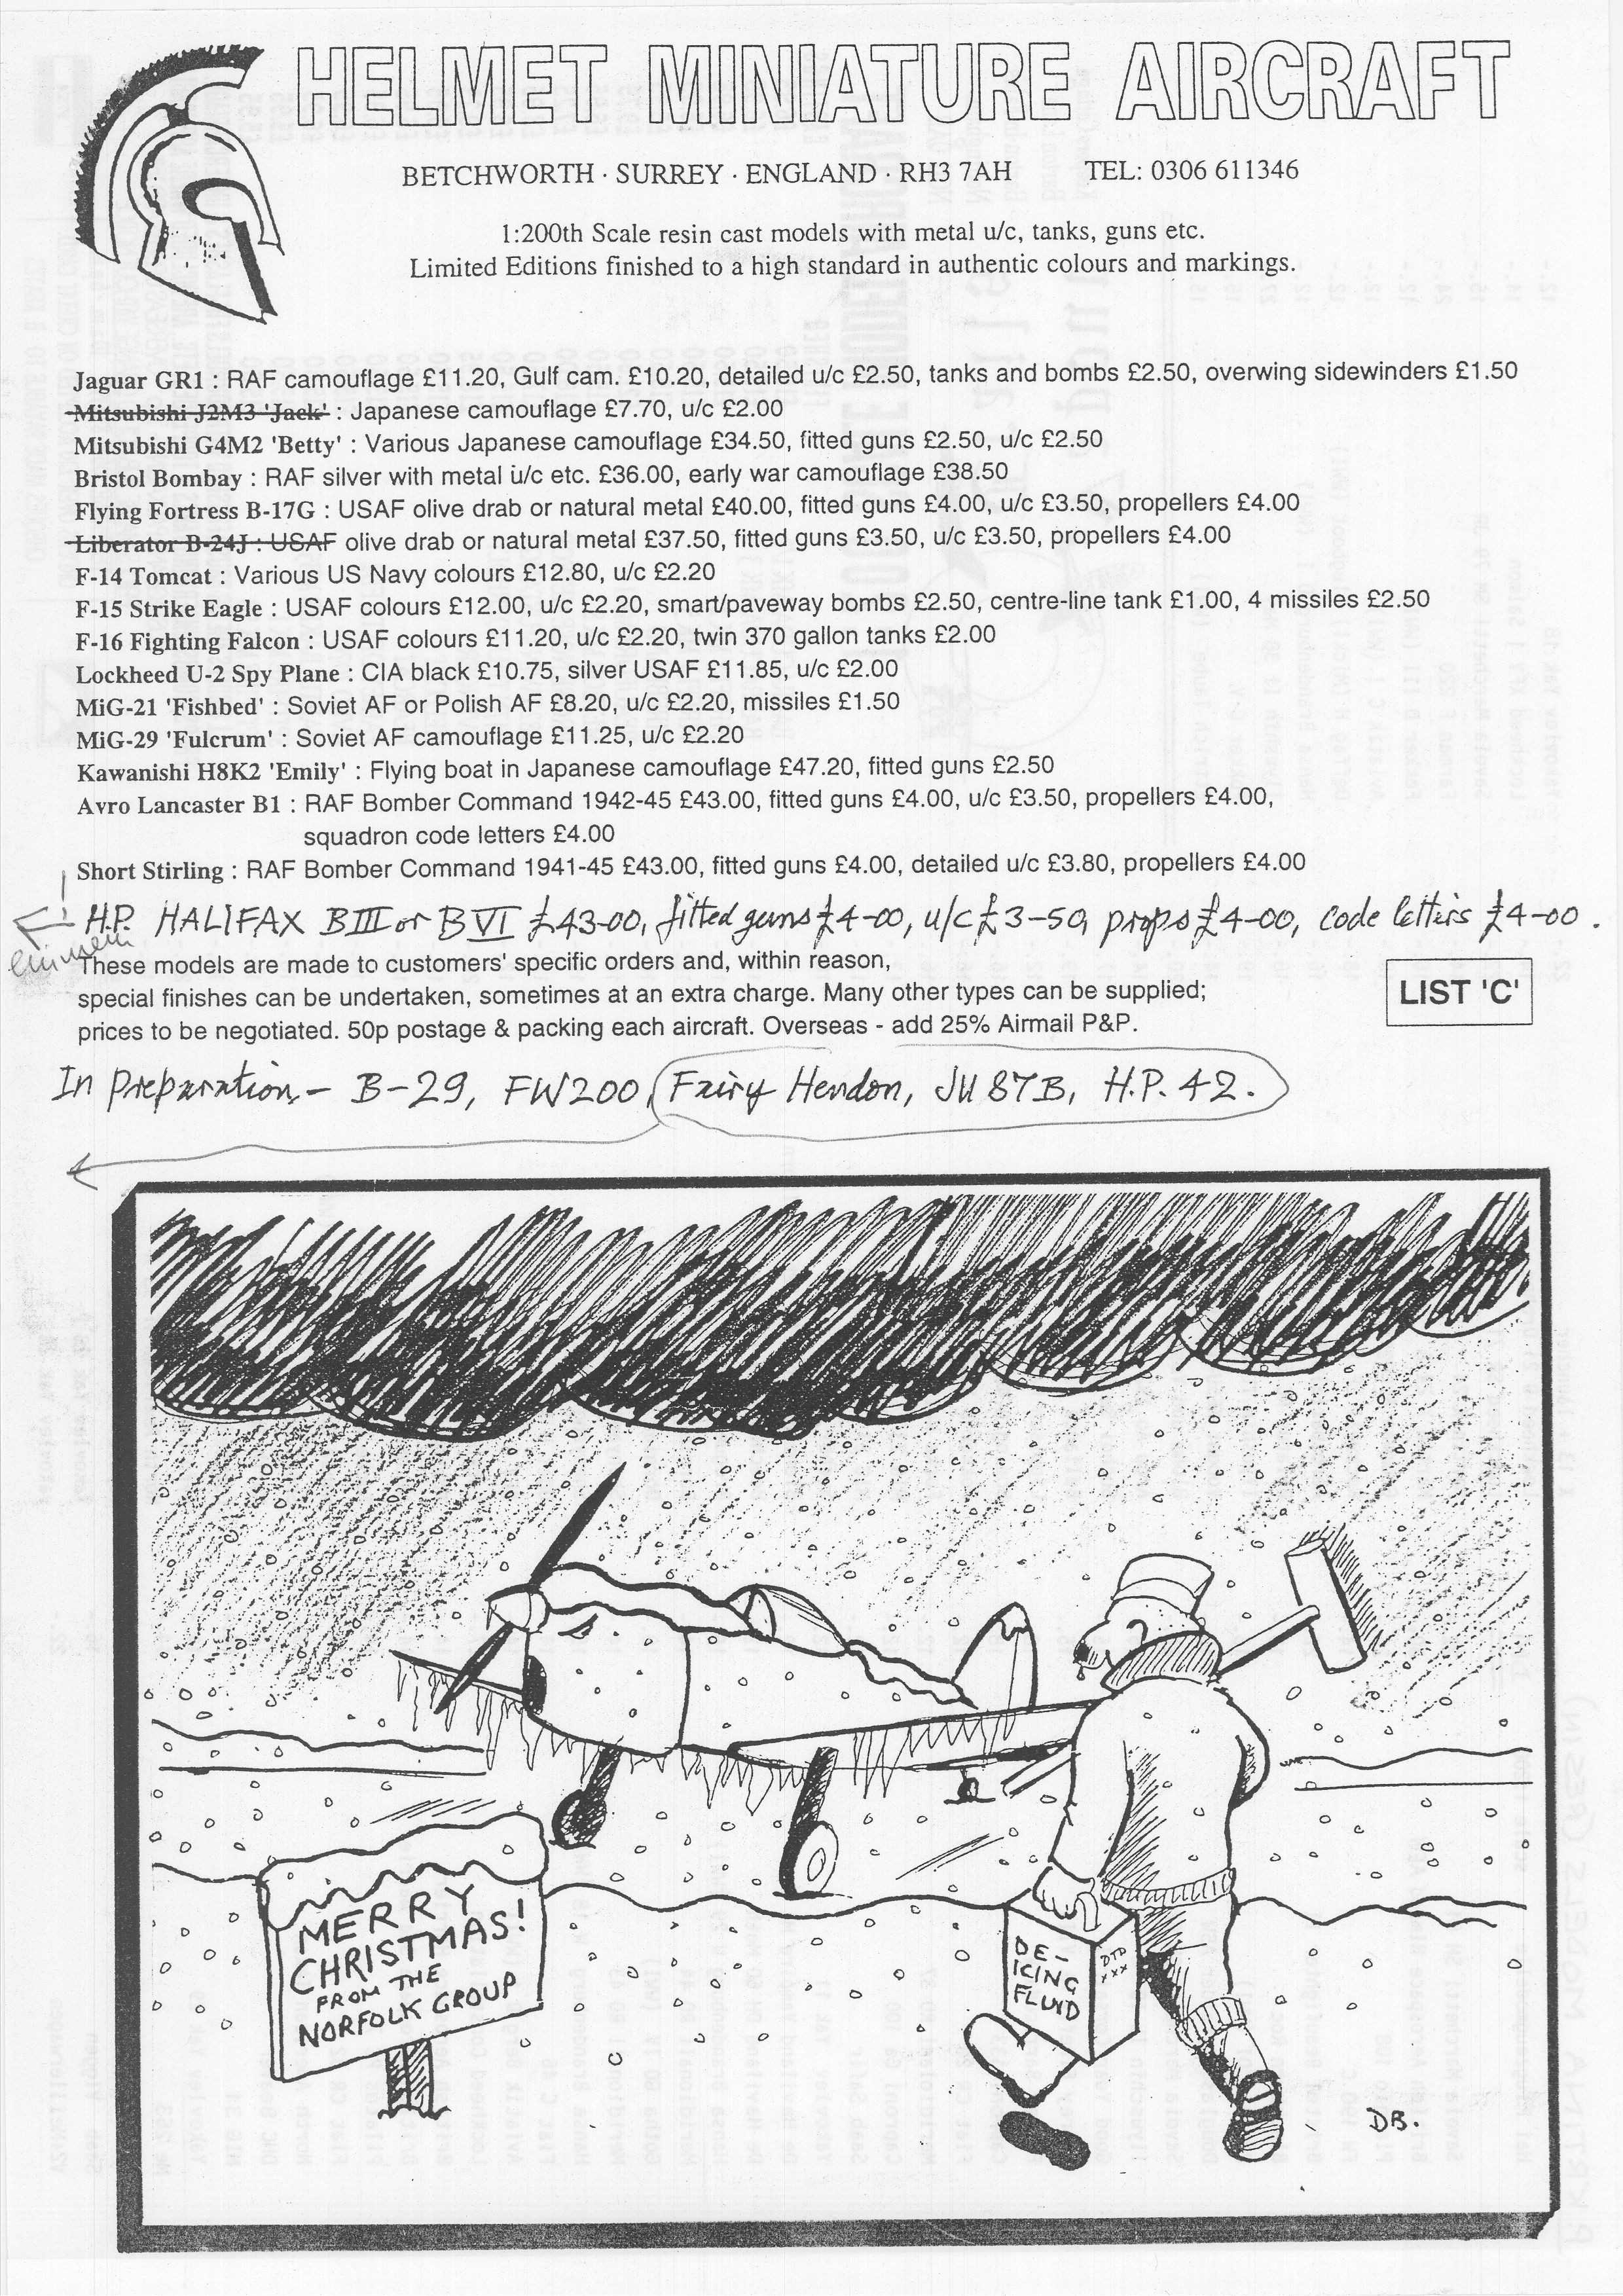 HELMET MINIATURE AIRCRAFT
BETCHWORTH · SURREY · ENGLAND · RH3 7AH TEL: 0306 611346
1:200th Scale resin cast models with metal u/c, tanks, guns etc.
Limited Editions finished to a high standard in authentic colours and markings.
Jaguar GR1 : RAF camouflage £11.20, Gulf cam. £10.20, detailed u/c £2.50, tanks and bombs £2.50, overwing sidewinders £1.50
Mitsubishi J2M3 'Jack' : Japanese camouflage £7.70, u/c £2.00
Mitsubishi G4M2 'Betty' : Various Japanese camouflage £34.50, fitted guns £2.50, u/c £2.50
Bristol Bombay : RAF silver with metal u/c etc. £36.00, early war camouflage £38.50
Flying Fortress B-17G : USAF olive drab or natural metal £40.00, fitted guns £4.00, u/c £3.50, propellers £4.00
Liberator B-24J : USAF olive drab or natural metal £37.50, fitted guns £3.50, u/c £3.50, propellers £4.00
F-14 Tomcat : Various US Navy colours £12.80, u/c £2.20
F-15 Strike Eagle : USAF colours £12.00, u/c £2.20, smart/paveway bombs £2.50, centre-line tank £1.00, 4 missiles £2.50
F-16 Fighting Falcon : USAF colours £11.20, u/c £2.20, twin 370 gallon tanks £2.00
Lockheed U-2 Spy Plane : CIA black £10.75, silver USAF £11.85, u/c £2.00
MiG-21 'Fishbed' : Soviet AF or Polish AF £8.20, u/c £2.20, missiles £1.50
MiG-29 'Fulcrum' : Soviet AF camouflage £11.25, u/c £2.20
Kawanishi H8K2 'Emily' : Flying boat in Japanese camouflage £47.20, fitted guns £2.50
Avro Lancaster B1 : RAF Bomber Command 1942-45 £43.00, fitted guns £4.00, u/c £3.50, propellers £4.00,
squadron code letters £4.00
Short Stirling : RAF Bomber Command 1941-45 £43.00, fitted guns £4.00, detailed u/c £3.80, propellers £4.00
H.P. HALIFAX BIII or BVI £43-00, fitted guns £4-00, u/c £3-50, props £4-00, code letters £4-00.
These models are made to customers' specific orders and, within reason,
special finishes can be undertaken, sometimes at an extra charge. Many other types can be supplied;
prices to be negotiated. 50p postage & packing each aircraft. Overseas - add 25% Airmail P&P.
LIST 'C'
In Preparation - B-29, FW200, Fairy Hendon, JU 87B, H.P. 42.
MERRY
CHRISTMAS!
FROM THE
NORFOLK GROUP
DE-
ICING
FLUID
DTD
XXX
DB.